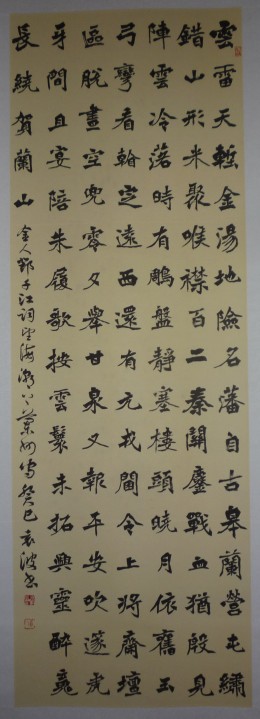 雲雷天塹金湯地險名藩自古皋蘭營屯繡
錯山形米聚喉襟百二秦關鏖戰血猶殷見
陣雲冷落時有鵰盤靜塞樓頭曉月依舊玉
弓彎看看定遠西還有元戎閫令上將齋壇
區脫晝空兜零夕舉甘泉又報平安吹篴虎
牙間且宴陪朱履歌按雲鬟未拓興靈醉魂
長繞賀蘭山 金人鄧千江詞望海潮上蘭州守癸巳袁波書